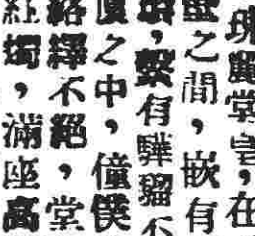 瑰麗堂皇，在
之間，嵌有
，繫有驊騮不
廈之中，僮僕
絡繹不絕，堂
紅燭，滿座高